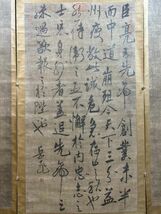 臣亮先帝創業未半
而中道崩殂今天下三分益
州疲敝此誠危急存亡之秋也
然侍衛之臣不懈於內忠志之
士忘身於外者蓋追先帝之
殊遇欲報於陛下也 岳飛